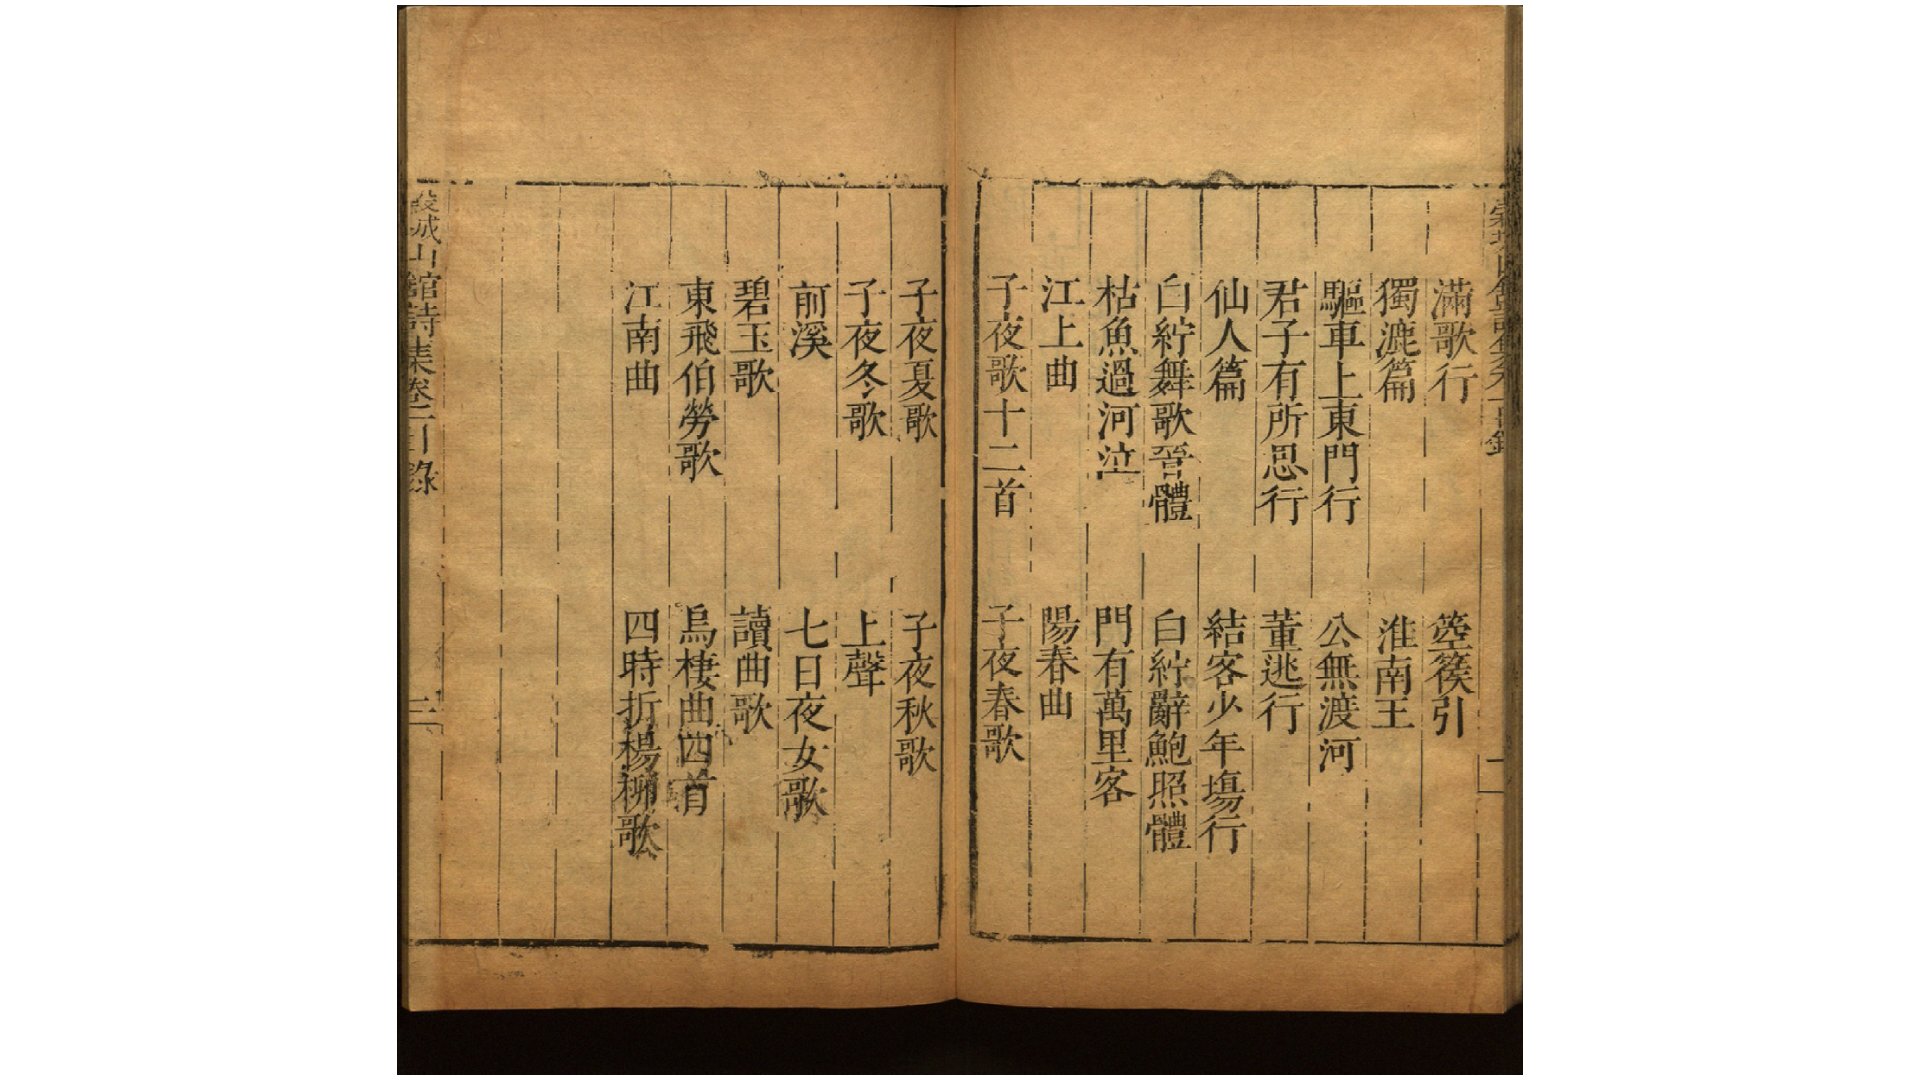 滿歌行 箜篌引
獨漉篇 淮南王
驅車上東門行 公無渡河
君子有所思行 董逃行
仙人篇 結客少年塲行
白紵舞歌晉體 白紵辭鮑照體
枯魚過河泣 門有萬里客
江上曲 陽春曲
子夜歌十二首 子夜春歌
子夜夏歌 子夜秋歌
子夜冬歌 上聲
前溪 七日夜女歌
碧玉歌 讀曲歌
東飛伯勞歌 烏棲曲四首
江南曲 四時折楊柳歌
城山館詩集卷二目錄 三